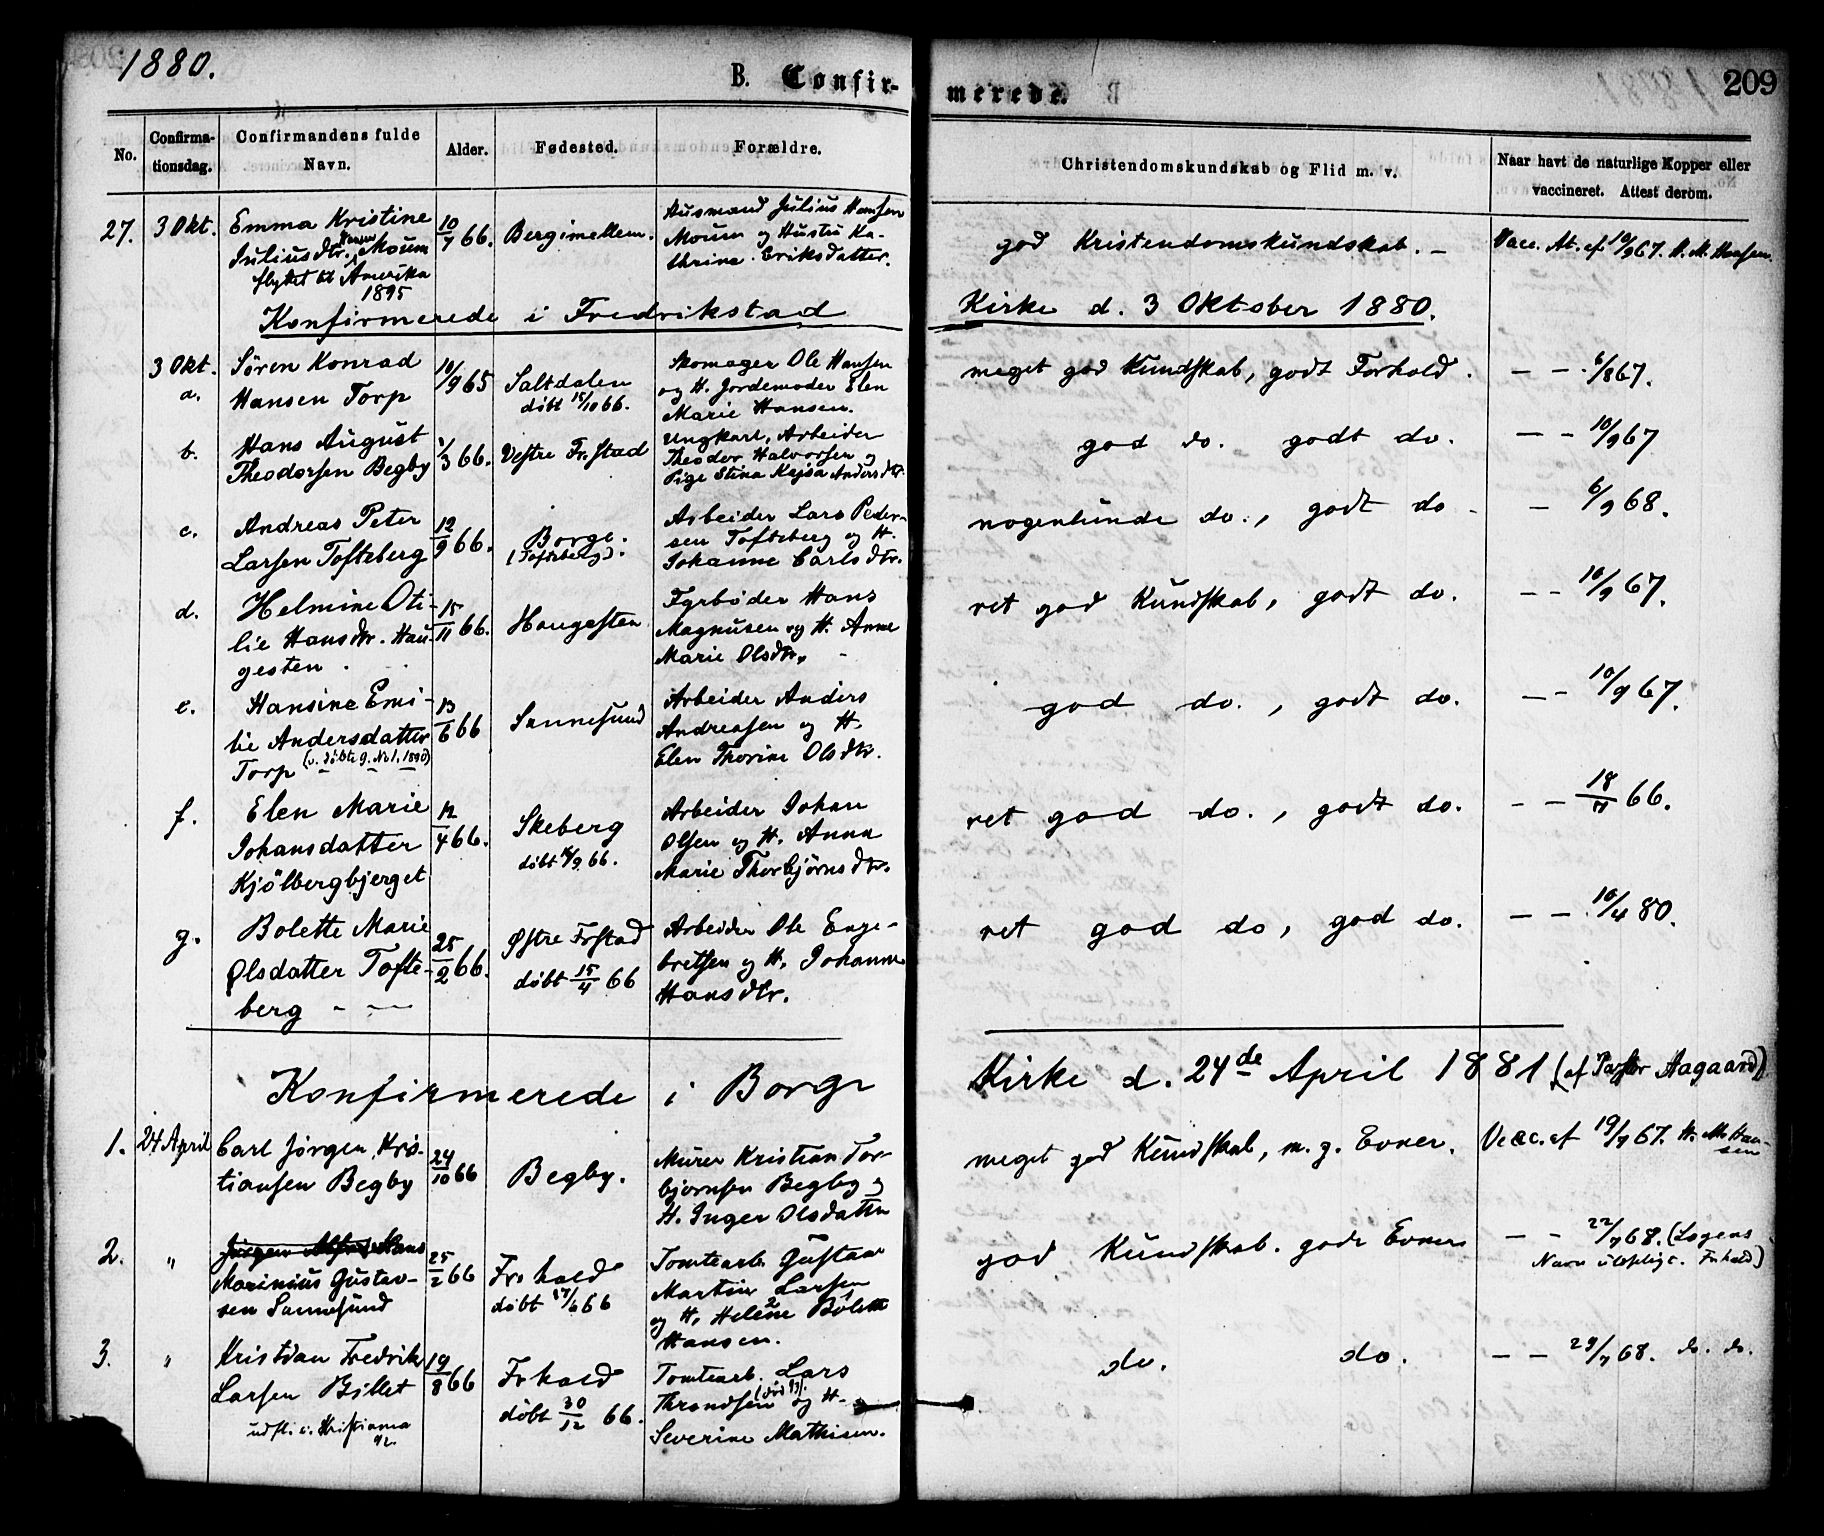 1880.
B. Confir-
merede.
209
No.
Confirma-
tionsdag.
Confirmandens fulde
Navn.
Alder.
Fødested.
Forældre.
Christendomskundskab og Flid m. v.
Naar havt de naturlige Kopper eller
vaccineret. Attest derom.
27. 3 Okt. Emma Kristine 10/7 66. Bergimellem. Husmand Julius Hansen
Juliusdtr. Moum Moum og Hustru Ka-
flyttet til Amerika thrine Eriksdatter.
1895
god Kristendomskundskab. - Vacc. At. af 10/9 67. H. M. Hansen.
Konfirmerede i Fredrikstad Kirke d. 3 Oktober 1880.
3 Okt. Søren Konrad 10/9 65 Saltdalen Skomager Ole Hansen
a. Hansen Torp døbt 15/10 66. og H. Jordemoder Elen
Marie Hansen.
meget god Kundskab, godt Forhold. — — 6/8 67.
b. Hans August 1/3 66. Vestre Fr.stad Ungkarl, Arbeider
Theodorsen Begby Theodor Halvorsen og
Pige Stina Kajsa Andersdtr.
god do. godt do. — — 10/9 67
c. Andreas Peter 12/9 66. Borge. Arbeider Lars Peder-
Larsen Tofteberg (Tofteberg). sen Tofteberg og H.
Johanne Carlsdtr.
nogenlunde do., godt do - — 6/9 68.
d. Helmine Oti- 15/11 66. Haugesten Fyrbøder Hans
lie Hansdtr. Hau- Magnusen og H. Anne
gesten. Marie Olsdtr.
ret god Kundskab, godt do. — — 10/9 67.
e. Hansine Emi- 13/6 66 Sannesund Arbeider Anders
lie Andersdatter Andreasen og H.
Torp (v. døbte g. No 1. 1890) Elen Thorine Olsdtr.
god do., godt do. — — 10/9 67.
f. Elen Marie 12/4 66. Skeberg Arbeider Johan
Johansdatter døbt 16/9 66. Olsen og H. Anna
Kjölbergbjerget Marie Thorbjørnsdtr.
ret god do., godt do. — — 18/7 66.
g. Bolette Marie 25/2 66. Østre Frstad Arbeider Ole Enge-
Olsdatter Tofte- døbt 15/4 66 bretsen og H. Johanne
berg - — Hansdtr.
ret god do, god do. — — 10/4 80.
Konfirmerede i Borge Kirke d. 24de April 1881 (af Pastor Aagaard)
1. 24 April Carl Jørgen Kris- 24/10 66 Begby. Murer Kristian Tor-
tiansen Begby bjørnsen Begby og
H. Inger Olsdatter
meget god Kundskab, m. g. Evner. Vacc. af 19/7 67. H. M. Han-
sen
2. " Jørgen Alfred Hans 25/2 66 Fr.hald Tomtearb. Gustav
Marinius Gustav- døbt 17/6 66 Martin Larsen
sen Sannesund og H. Helene Bolette
Hansen.
god Kundskab. gode Evner — — 22/7 68. (Lægens
Navn ulæseligt. Frhald)
3. " Kristian Fredrik 19/8 66 Fr hald Tomtearb. Lars
Larsen Billet døbt 30/12 66. Throndsen og H.
udfl. i. Kristiania Severine Mathisen.
do. do. — — 29/7 68. do. do.